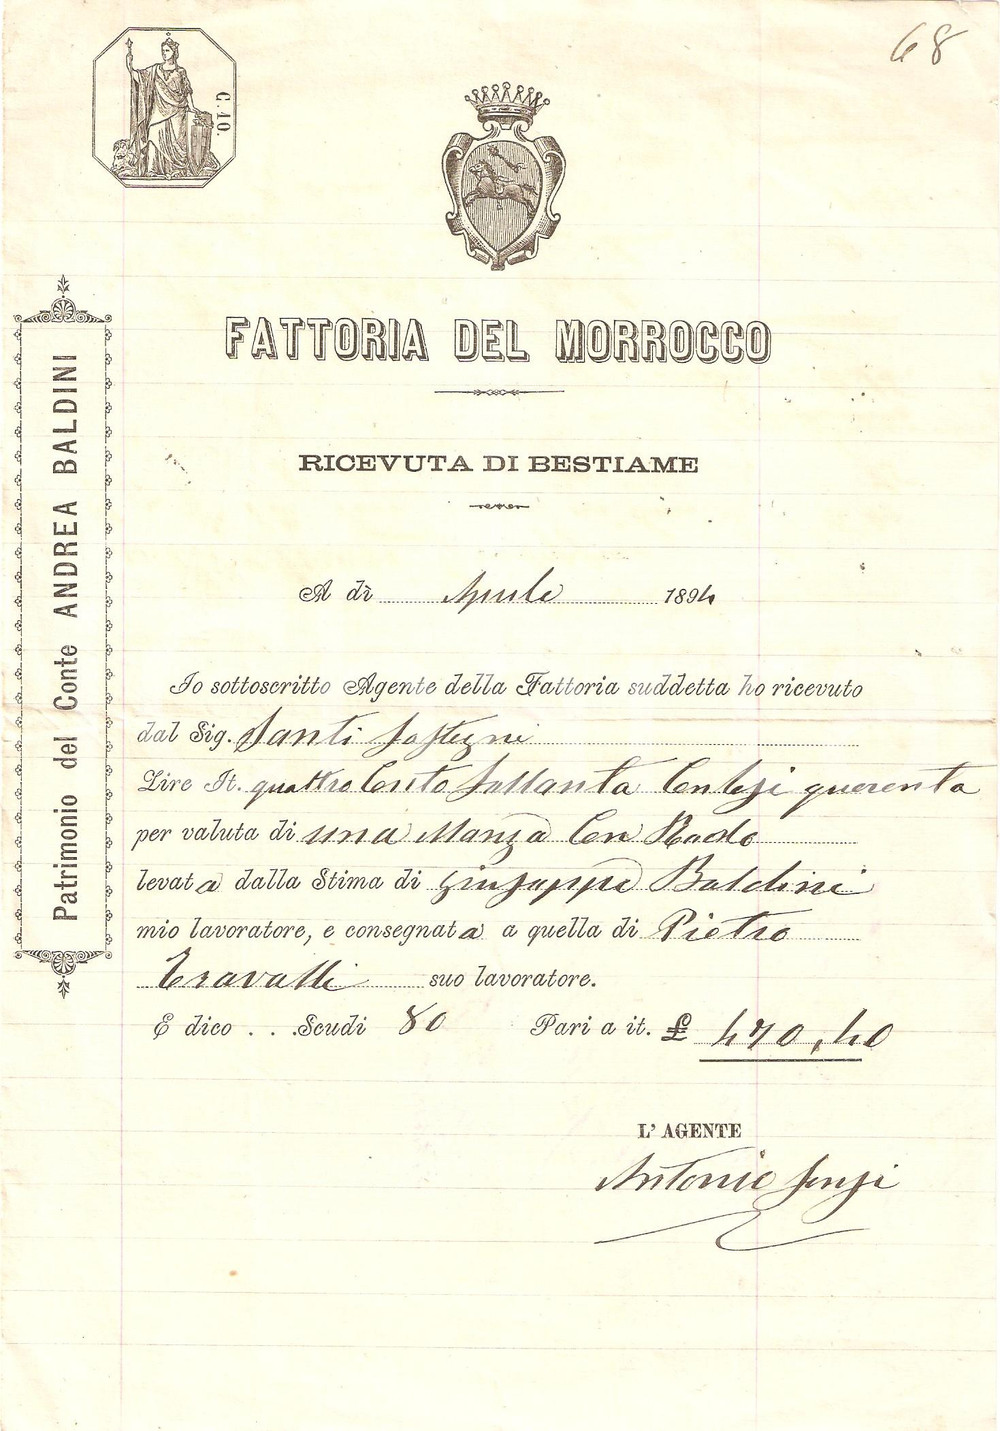 68
C. 10.
FATTORIA DEL MORROCCO
RICEVUTA DI BESTIAME
Patrimonio del Conte ANDREA BALDINI
A dì Aprile 1894
Io sottoscritto Agente della Fattoria suddetta ho ricevuto
dal Sig. Santi Sostegni
Lire It. quattro Cento Settanta Centesi querenta
per valuta di una Manza Con Redo
levata dalla Stima di Giuseppe Baldini
mio lavoratore, e consegnata a quella di Pietro
Travalli suo lavoratore.
E dico . . .Scudi 80 Pari a it. £ 470,40
L' AGENTE
Antonio